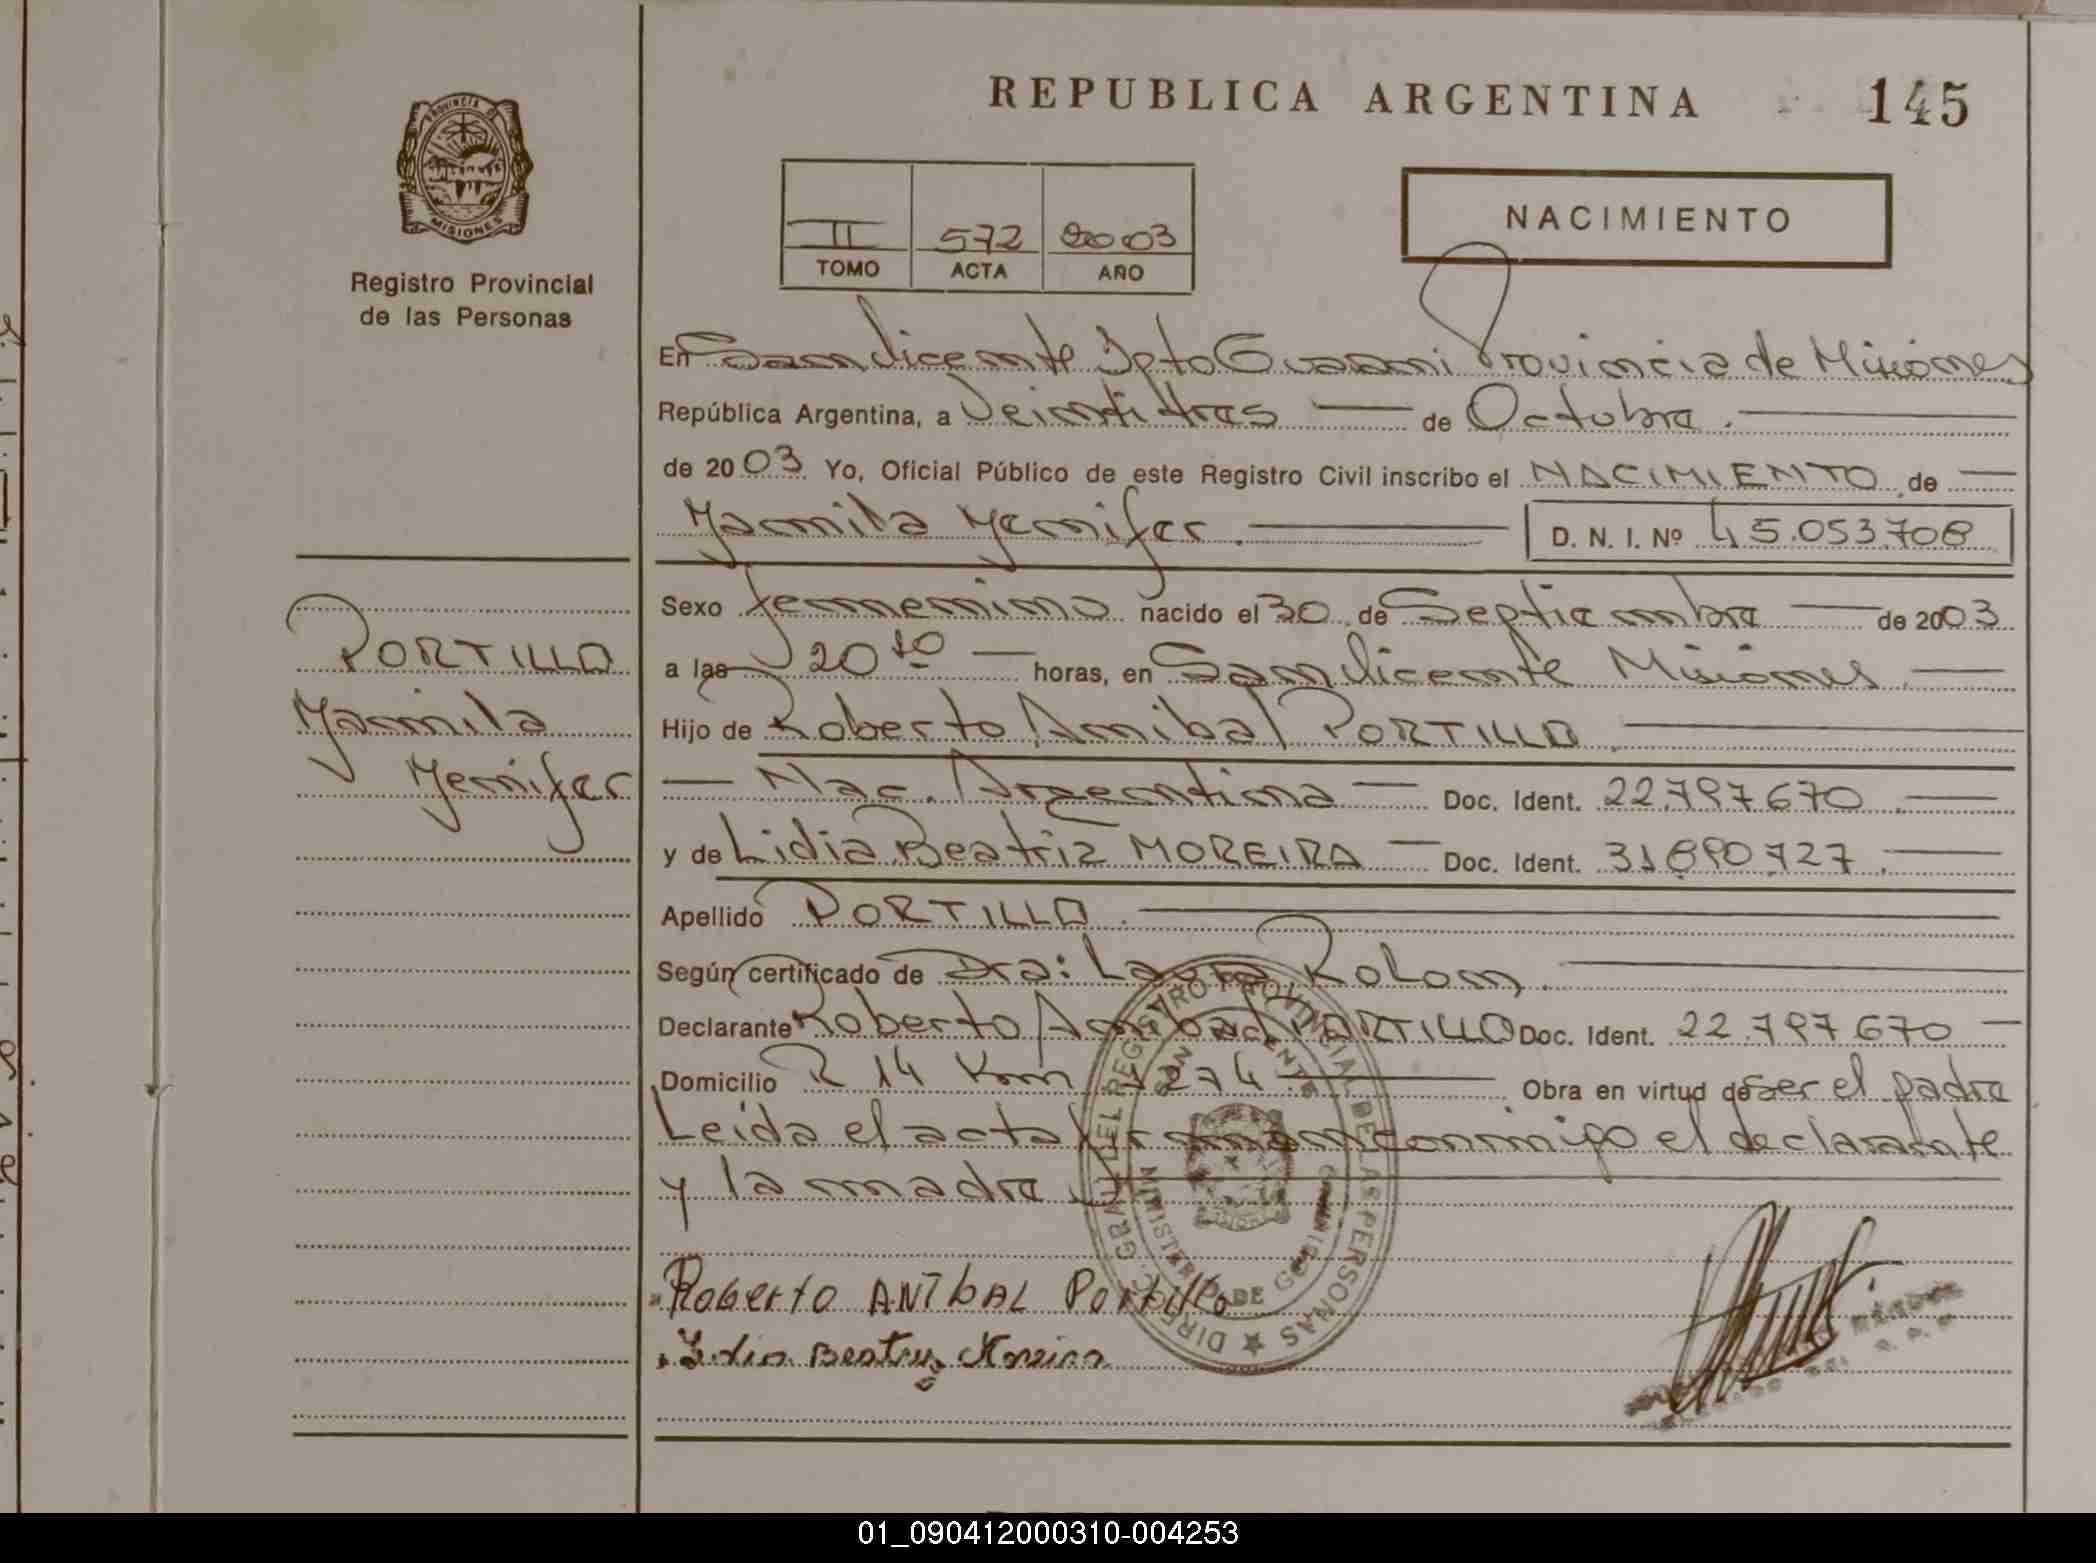 REPUBLICA ARGENTINA 145
PROVINCIA DE
MISIONES
Registro Provincial
de las Personas
II 572 2003
TOMO ACTA AÑO
NACIMIENTO
En San Vicente Dpto Guarani Provincia de Misiones
República Argentina, a Veintitres de Octubre.
de 2003 Yo, Oficial Público de este Registro Civil inscribo el NACIMIENTO de
Yamila Yenifer. D. N. I. Nº 45.053.708
Sexo femenino nacido el 30 de Septiembre de 2003
a las 20 10 horas, en San Vicente Misiones.
Hijo de Roberto Anibal PORTILLO.
Nac. Argentina Doc. Ident. 22.797670.
y de Lidia Beatriz MOREIRA Doc. Ident. 31890727.
Apellido PORTILLO.
Según certificado de Dra: Laura Rolon.
Declarante Roberto Anibal PORTILLO Doc. Ident. 22.797670
Domicilio R 14 Km 1274 Obra en virtud de ser el padre
Leida el acta firman conmigo el declarante
y la madre
PORTILLO
Yamila
Yenifer
DIREC. GRAL. DEL REGISTRO PROVINCIAL DE LAS PERSONAS
SAN VICENTE
MINISTERIO DE GOBIERNO
MISIONES
Roberto ANIbAL Portillo
Lidia Beatriz Moreira
01_090412000310-004253